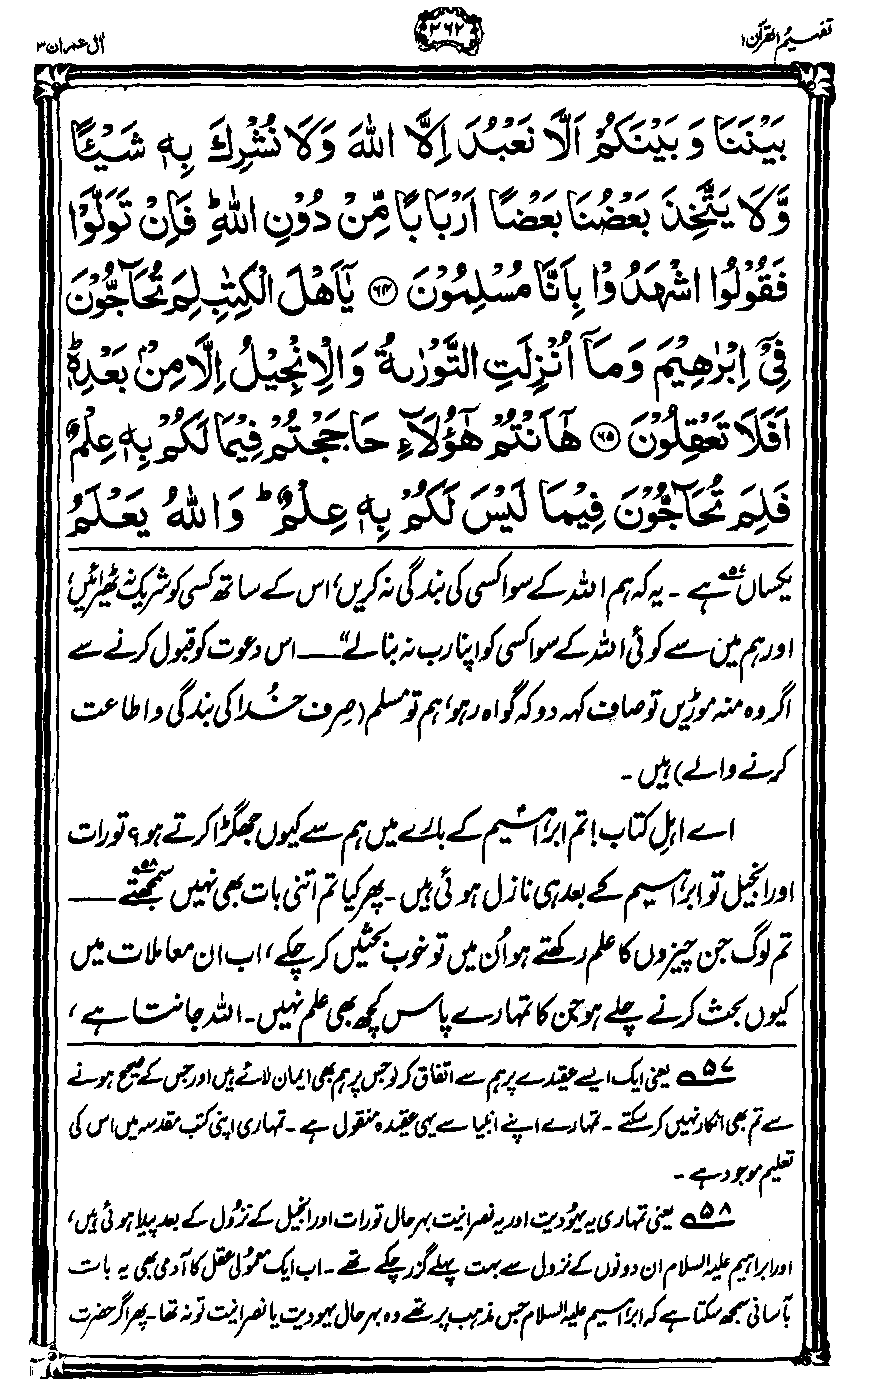 تفہیم القرآن ۱
۲۶۲
آل عمران ۳
بَيْنَنَا وَ بَيْنَكُمْ اَلَّا نَعْبُدَ اِلَّا اللّٰهَ وَلَا نُشْرِكَ بِهٖ شَيْـًٔا
وَّلَا يَتَّخِذَ بَعْضُنَا بَعْضًا اَرْبَابًا مِّنْ دُوْنِ اللّٰهِ ؕ فَاِنْ تَوَلَّوْا
فَقُوْلُوا اشْهَدُوْا بِاَنَّا مُسْلِمُوْنَ ﴿۶۴﴾ يٰۤاَهْلَ الْكِتٰبِ لِمَ تُحَآجُّوْنَ
فِيْۤ اِبْرٰهِيْمَ وَمَاۤ اُنْزِلَتِ التَّوْرٰىةُ وَالْاِنْجِيْلُ اِلَّا مِنْۢ بَعْدِهٖ ؕ
اَفَلَا تَعْقِلُوْنَ ﴿۶۵﴾ هٰۤاَنْتُمْ هٰۤؤُلَآءِ حَاجَجْتُمْ فِيْمَا لَكُمْ بِهٖ عِلْمٌ
فَلِمَ تُحَآجُّوْنَ فِيْمَا لَيْسَ لَكُمْ بِهٖ عِلْمٌ ؕ وَاللّٰهُ يَعْلَمُ
یکساں ۵۷ ہے۔ یہ کہ ہم اللہ کے سوا کسی کی بندگی نہ کریں، اس کے ساتھ کسی کو شریک نہ ٹھیرائیں،
اور ہم میں سے کوئی اللہ کے سوا کسی کو اپنا رب نہ بنا لے“ ــــ اس دعوت کو قبول کرنے سے
اگر وہ منہ موڑیں تو صاف کہہ دو کہ گواہ رہو، ہم تو مسلم (صِرف خدا کی بندگی و اطاعت
کرنے والے) ہیں۔
اے اہلِ کتاب! تم ابراہیمؑ کے بارے میں ہم سے کیوں جھگڑا کرتے ہو؟ تورات
اور انجیل تو ابراہیم کے بعد ہی نازل ہوئی ہیں۔ پھر کیا تم اتنی بات بھی نہیں سمجھتے ۵۸ ــــ
تم لوگ جن چیزوں کا علم رکھتے ہو اُن میں تو خوب بحثیں کر چکے، اب ان معاملات میں
کیوں بحث کرنے چلے ہو جن کا تمہارے پاس کچھ بھی علم نہیں۔ اللہ جانتا ہے،
۵۷ یعنی ایک ایسے عقیدے پر ہم سے اتفاق کر لو جس پر ہم بھی ایمان لائے ہیں اور جس کے صحیح ہونے
سے تم بھی انکار نہیں کر سکتے۔ تمہارے اپنے انبیا سے یہی عقیدہ منقول ہے۔ تمہاری اپنی کتب مقدسہ میں اس کی
تعلیم موجود ہے۔
۵۸ یعنی تمہاری یہ یہودیت اور یہ نصرانیت بہرحال تورات اور انجیل کے نزُول کے بعد پیدا ہوئی ہیں،
اور ابراہیم علیہ السلام ان دونوں کے نزول سے بہت پہلے گزر چکے تھے۔ اب ایک معمولی عقل کا آدمی بھی یہ بات
بآسانی سمجھ سکتا ہے کہ ابراہیم علیہ السلام جس مذہب پر تھے وہ بہرحال یہودیت یا نصرانیت تو نہ تھا۔ پھر اگر حضرت